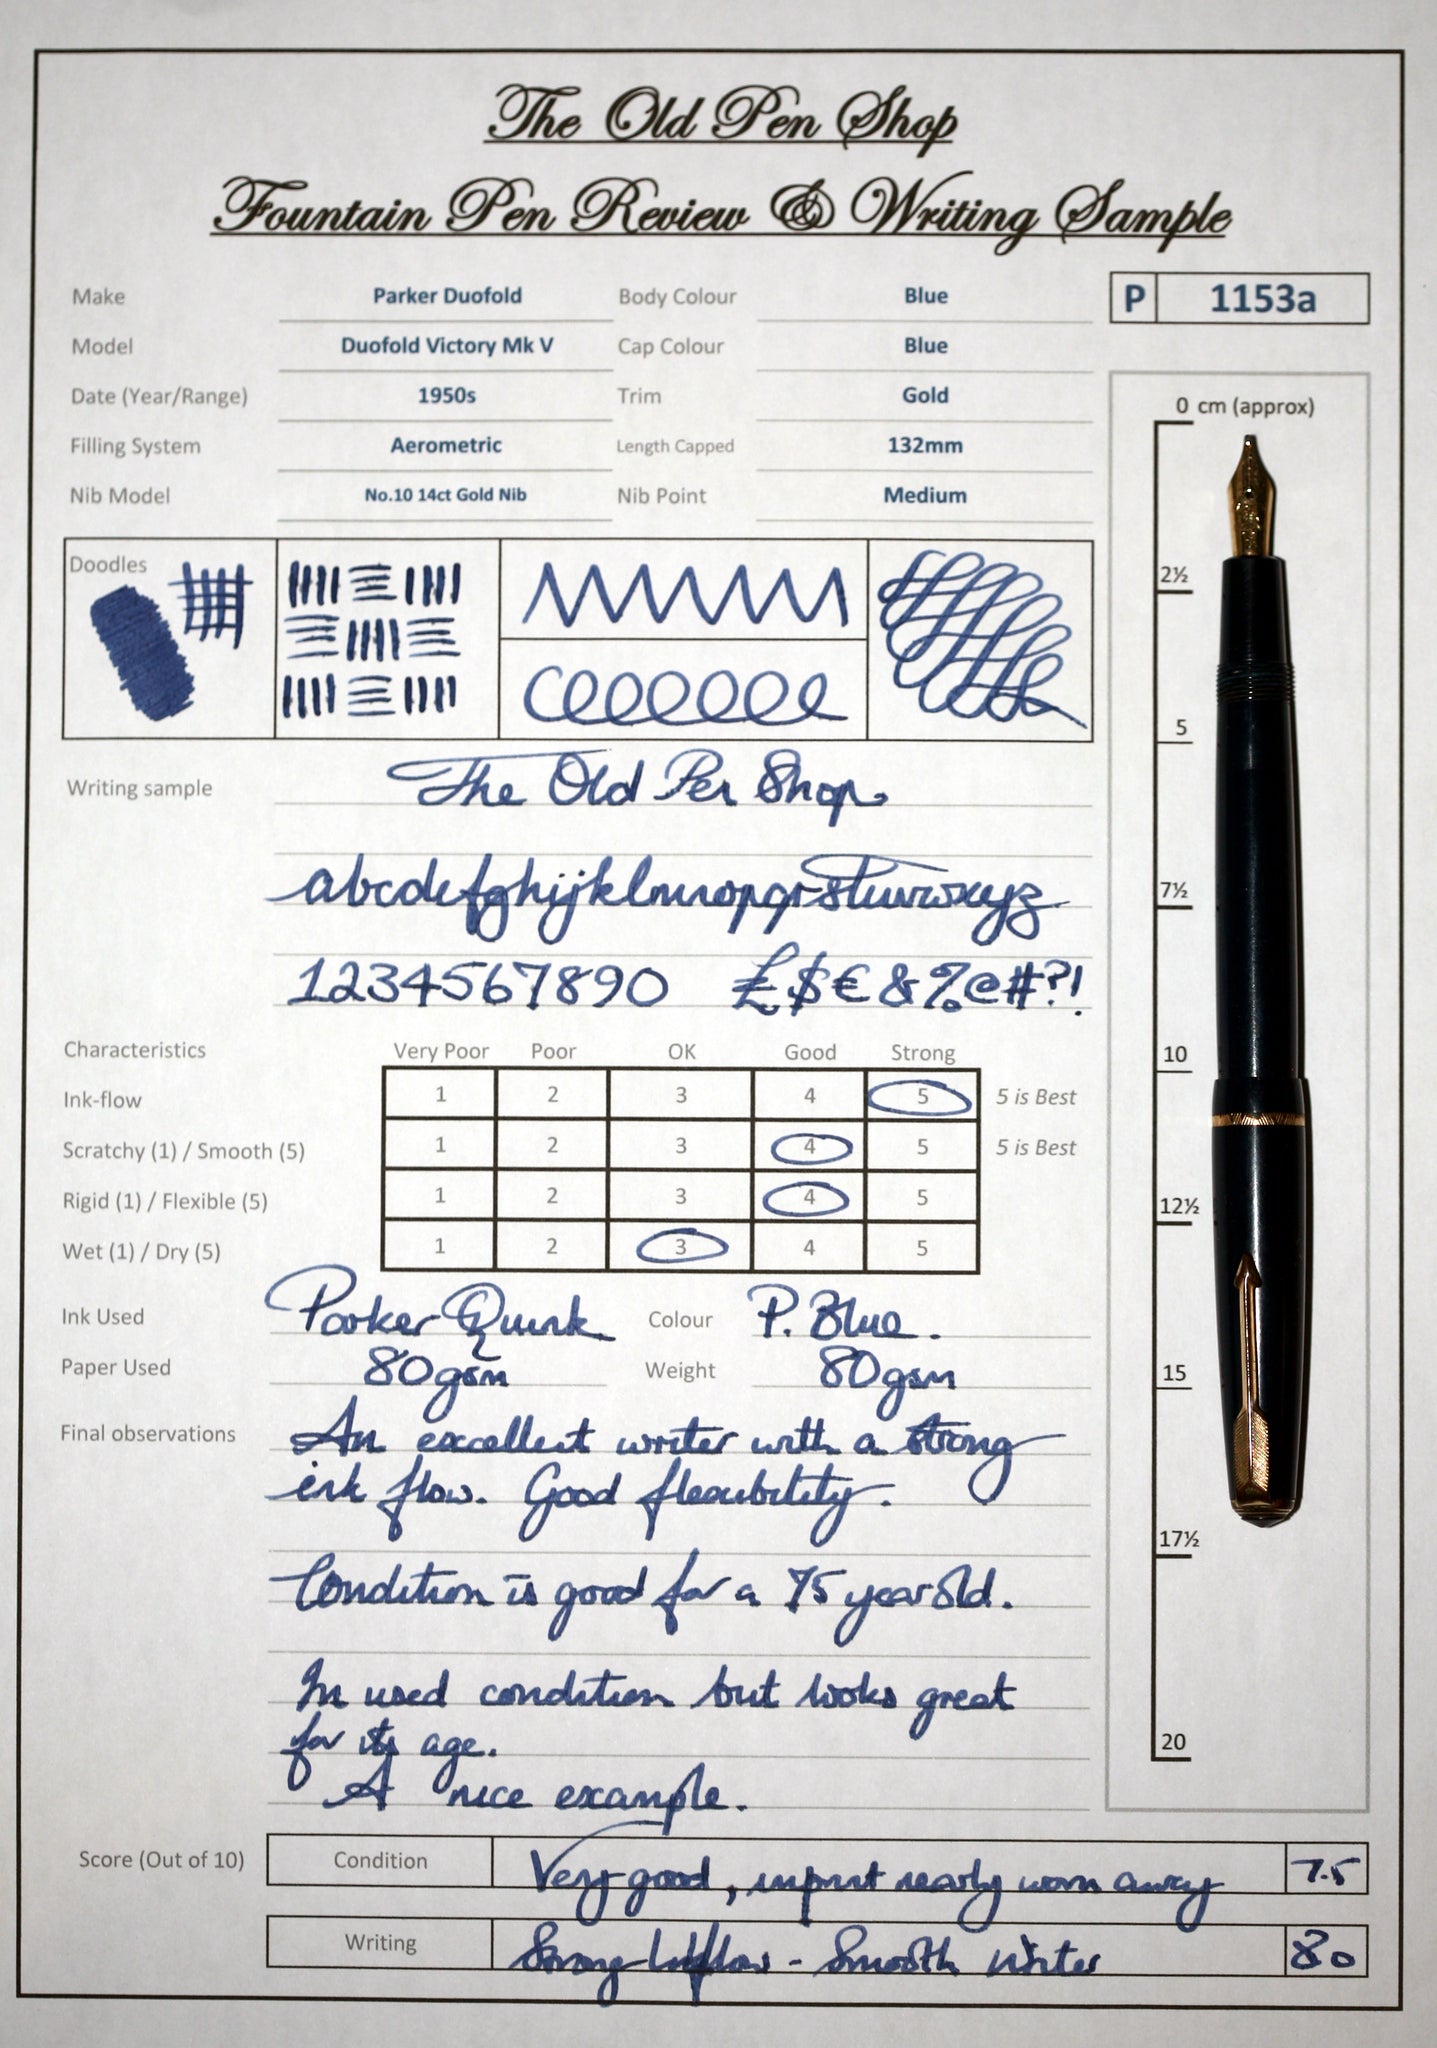 The Old Pen Shop
Fountain Pen Review & Writing Sample
Make Parker Duofold Body Colour Blue P 1153a
Model Duofold Victory Mk V Cap Colour Blue
Date (Year/Range) 1950s Trim Gold
Filling System Aerometric Length Capped 132mm
Nib Model No.10 14ct Gold Nib Nib Point Medium
0 cm (approx)
2½
5
7½
10
12½
15
17½
20
Doodles
Writing sample The Old Pen Shop.
abcdefghijklmnopqrstuvwxyz
1234567890 £$€&%@#?!
Characteristics Very Poor Poor OK Good Strong
Ink-flow 1 2 3 4 5 5 is Best
Scratchy (1) / Smooth (5) 1 2 3 4 5 5 is Best
Rigid (1) / Flexible (5) 1 2 3 4 5
Wet (1) / Dry (5) 1 2 3 4 5
Ink Used Parker Quink Colour P. Blue.
Paper Used 80gsm Weight 80gsm
Final observations An excellent writer with a strong
ink flow. Good flexibility.
Condition is good for a 75 year old.
In used condition but looks great
for its age.
A nice example.
Score (Out of 10) Condition Very good, imprint nearly worn away 7.5
Writing Strong Inkflow - Smooth Writer 80